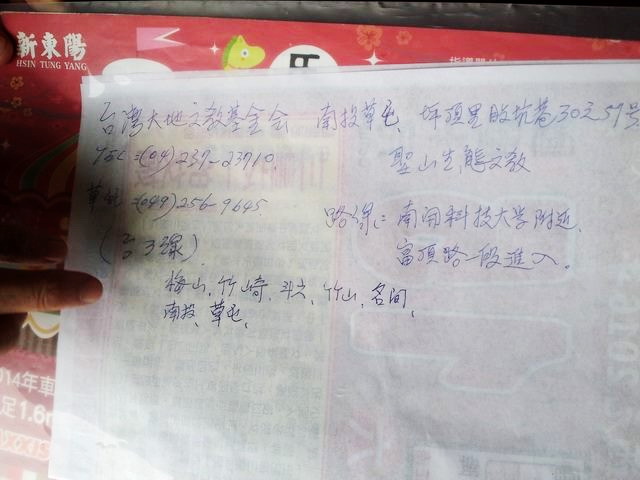 新東陽
HSIN TUNG YANG
台灣大地文教基金会 南投草屯、坪頂里股坑巷30之59号
TEL:(04)237-23710. 聖山生態文教
草屯:(049)256-9645.
路線:南開科技大学附近、
(台3線) 富頂路一段進入。
梅山、竹崎、斗六、竹山、名間、
南投、草屯、
014年車
足1.6m